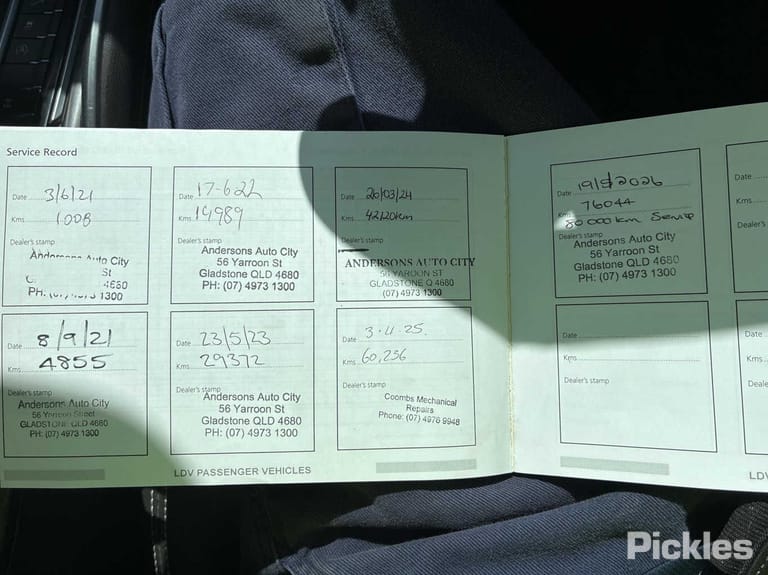 Service Record
Date 3/6/21
Kms 1008
Dealer's stamp
Andersons Auto City
St
4680
PH: 1300
Date 17-6-22
Kms 14989
Dealer's stamp
Andersons Auto City
56 Yarroon St
Gladstone QLD 4680
PH: (07) 4973 1300
Date 26/03/24
Kms 42120km
Dealer's stamp
ANDERSONS AUTO CITY
56 YAROON ST
GLADSTONE Q 4680
(07) 4973 1300
Date 8/9/21
Kms 4855
Dealer's stamp
Andersons Auto City
56 Yarroon Street
GLADSTONE QLD 4680
PH: (07) 4973 1300
Date 23/5/23
Kms 29372
Dealer's stamp
Andersons Auto City
56 Yarroon St
Gladstone QLD 4680
PH: (07) 4973 1300
Date 3.4.25.
Kms 60,236
Dealer's stamp
Coombs Mechanical
Repairs
Phone: (07) 4978 9948
LDV PASSENGER VEHICLES
Date 2026
Kms 76044
80 000km Service
Dealer's stamp
Andersons Auto City
56 Yarroon St
Gladstone QLD 4680
PH: (07) 4973 1300
Date
Kms
Dealer's stamp
Date
Kms
Dealer's
Date
Kms
Dealer's
LDV
Pickles